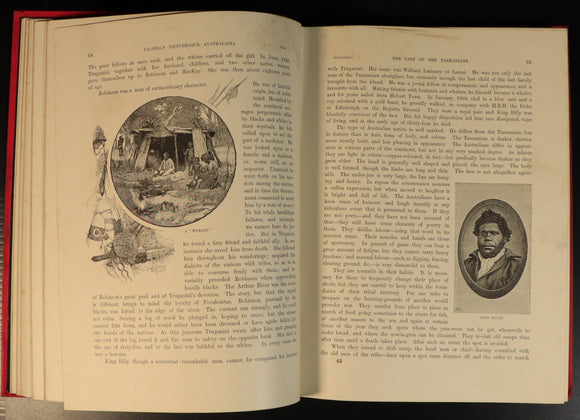 64
CASSELL'S PICTURESQUE AUSTRALASIA.
The poor fellows at once sank, and the whites carried off the girl. In June, 1830,
Truganini, together with her husband, children, and two other native women,
gave themselves up to Robinson and MacKay. She was then about eighteen years
of age.
Robinson was a man of extraordinary character.
Horrified by
the constant sav-
ages perpetrated alike
by blacks and whites in
their reprisals, he felt
called upon to act the
part of a mediator. He
was looked upon as a
fanatic and a madman,
or, worse still, as an
impostor. Unarmed he
went forth on his mission
among the natives,
and in time the Government
consented to assist
him by a vote of money.
To his trials, hardships
and triumphs
we cannot here do justice.
But in Truganini
he found a firm friend and faithful ally. In one
she saved him from death. She followed
him throughout his wanderings; acquired the
dialects of the various wild tribes, so as to be
able to converse freely with them; and in-
variably preceded Robinson when approaching
hostile blacks. The Arthur River was the scene
of Robinson's great peril and of Truganini's devotion. The story, but that the end
is different, brings to mind the loyalty of Pocahontas. Robinson, pursued by the
blacks, was forced to the edge of the river. The current ran strongly, and he could
not swim. Seizing a log of wood he plunged in, hoping to cross; but the stream
carried him down, and he would either have been drowned or have again fallen into
the hands of the natives. At this juncture Truganini swam after him, and grasping
one end of the log, towed it and the man to safety on the opposite bank. She died at
the age of sixty-five, and to the last was faithful to the whites. In every sense she
was a heroine.
King Billy, though a somewhat remarkable man, cannot be compared for interest
A "WURLEY."
THE LAST OF THE TASMANIANS.
65
with Truganini. His name was William Lanney or Lanné. He was not only the last
man of the Tasmanian aborigines, but, curiously enough, the last child of the last family
brought from the mainland. He was jovial in temperament and appearance, and a
favourite with all. Making friends with boatmen and whalers, he himself became a whaler,
and for years sailed from Hobart Town. In January, 1868, clad in a blue suit and a
cap adorned with a gold band, he proudly walked, in company with H.R.H. the Duke
of Edinburgh, on the Regatta Ground. They were a royal pair, and King Billy was
blissfully conscious of the fact. But his happy disposition led him into dissipated ways
of living, and at the early age of thirty-four he died.
The type of Australian native is well marked. He differs from the Tasmanian in
feature than in hair, form of body, and colour. The Tasmanian is darker, shorter,
more stoutly built, and less pleasing in appearance. The Australians differ in appear-
ance in various parts of the continent, but not in any very marked degree. As infants
they are light in colour—copper-coloured, in fact—but gradually become darker as they
grow older. The head is generally well shaped and placed, the eyes large. The body
is well formed, though the limbs are long and thin. The face is not altogether agree-
able. The under jaw is very large, the lips are hang-
ing and heavy. In repose the countenance assumes
a sullen expression, but when moved to laughter it
is bright and full of life. The Australians have a
keen sense of humour, and laugh heartily at any
ridiculous event that is presented to them. If they
are not poets—and they have not been accused of
that—they still have some elements of poetry in
them. They dislike labour—using that word in its
strictest sense. Their muscles and hands are those
of sportsmen. In pursuit of game they can bear a
great amount of fatigue, but they cannot carry heavy
burdens; and manual labour—such as digging, tearing,
clearing ground, &c.—is very distasteful to them.
They are nomadic in their habits. It is necessary
for them to frequently change their place of
abode, but they are careful to keep within the
boundaries of their tribal territory. For one tribe to
trespass on the hunting-grounds of another would
provoke war. They wander from place to place in
search of food, going sometimes to the rivers for fish,
at another season to the sea, and again at certain
times of the year they seek spots where the yam-roots can be got, wherewith to
make bread, or where the acacia-gum can be obtained. They re-visit old camps time
after time until a death takes place. After such an event the spot is avoided.
When they intend to shift camp, the head man or chief—having consulted with
the old men of the tribe—fixes upon a spot some distance off, and the order to march
KING BILLY.
43